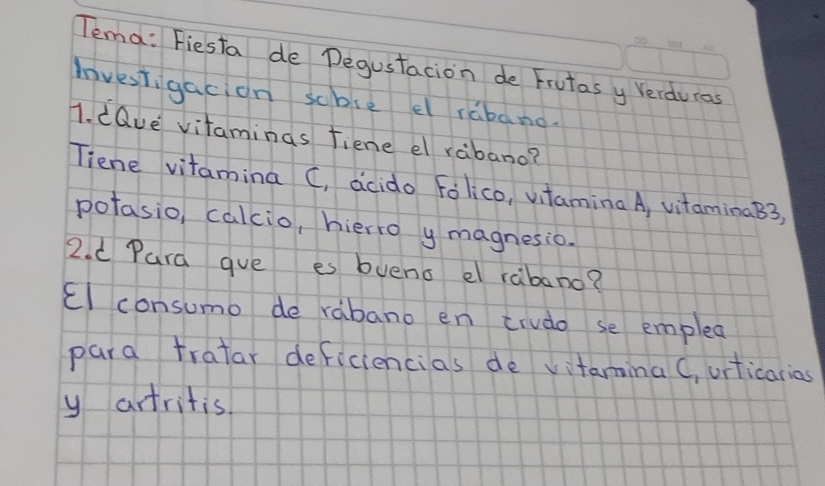 Tema: Fiesta de Degustación de Frutas y Verduras
Investigacion sobre el rábano.
1.¿Qué vitaminas tiene el rábano?
Tiene vitamina C, ácido Fólico, vitamina A, vitamina B3,
potasio, calcio, hierro y magnesio.
2.¿ Para que es bueno el rábano?
El consumo de rábano en crudo se emplea
para tratar deficiencias de vitamina C, urticarias
y artritis.